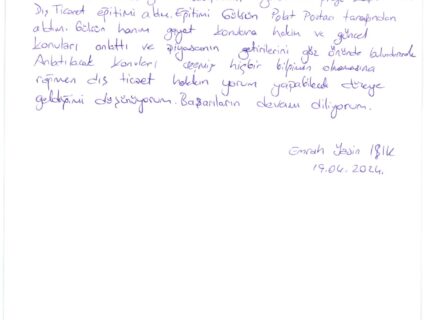 Dış Ticaret eğitimi aldım. Eğitimi Gülsün Polat Portan tarafından
aldım. Gülsün hanım gayet konuna hakim ve güncel
konuları anlattı ve piyasanın getirilerini göz önünde bulundurarak
Anlatılacak konuları hiçbir bilginin olmamasına
rağmen dış ticaret hakkın yorum yapabilecek düzeye
geldiğimi düşünüyorum. Başarıların devamı diliyorum.
Emrah Yasin IŞIK
19.04.2024.